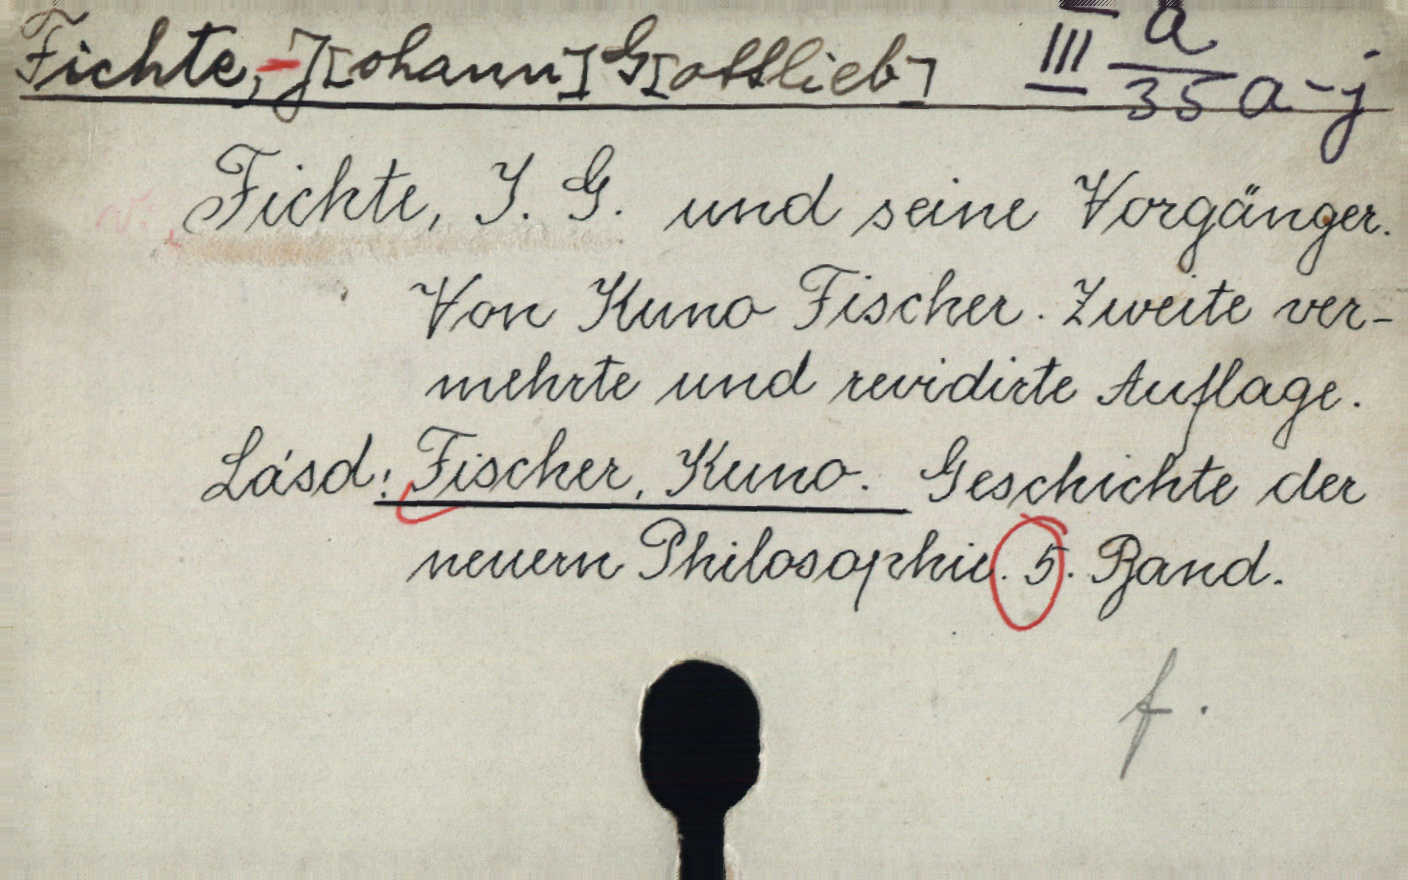 Fichte, J[ohann] G[ottlieb] III a/35 a-j
Fichte, J. G. und seine Vorgänger.
Von Kuno Fischer. Zweite ver-
mehrte und revidirte Auflage.
Lásd: Fischer, Kuno. Geschichte der
neuern Philosophie. 5. Band.
f.